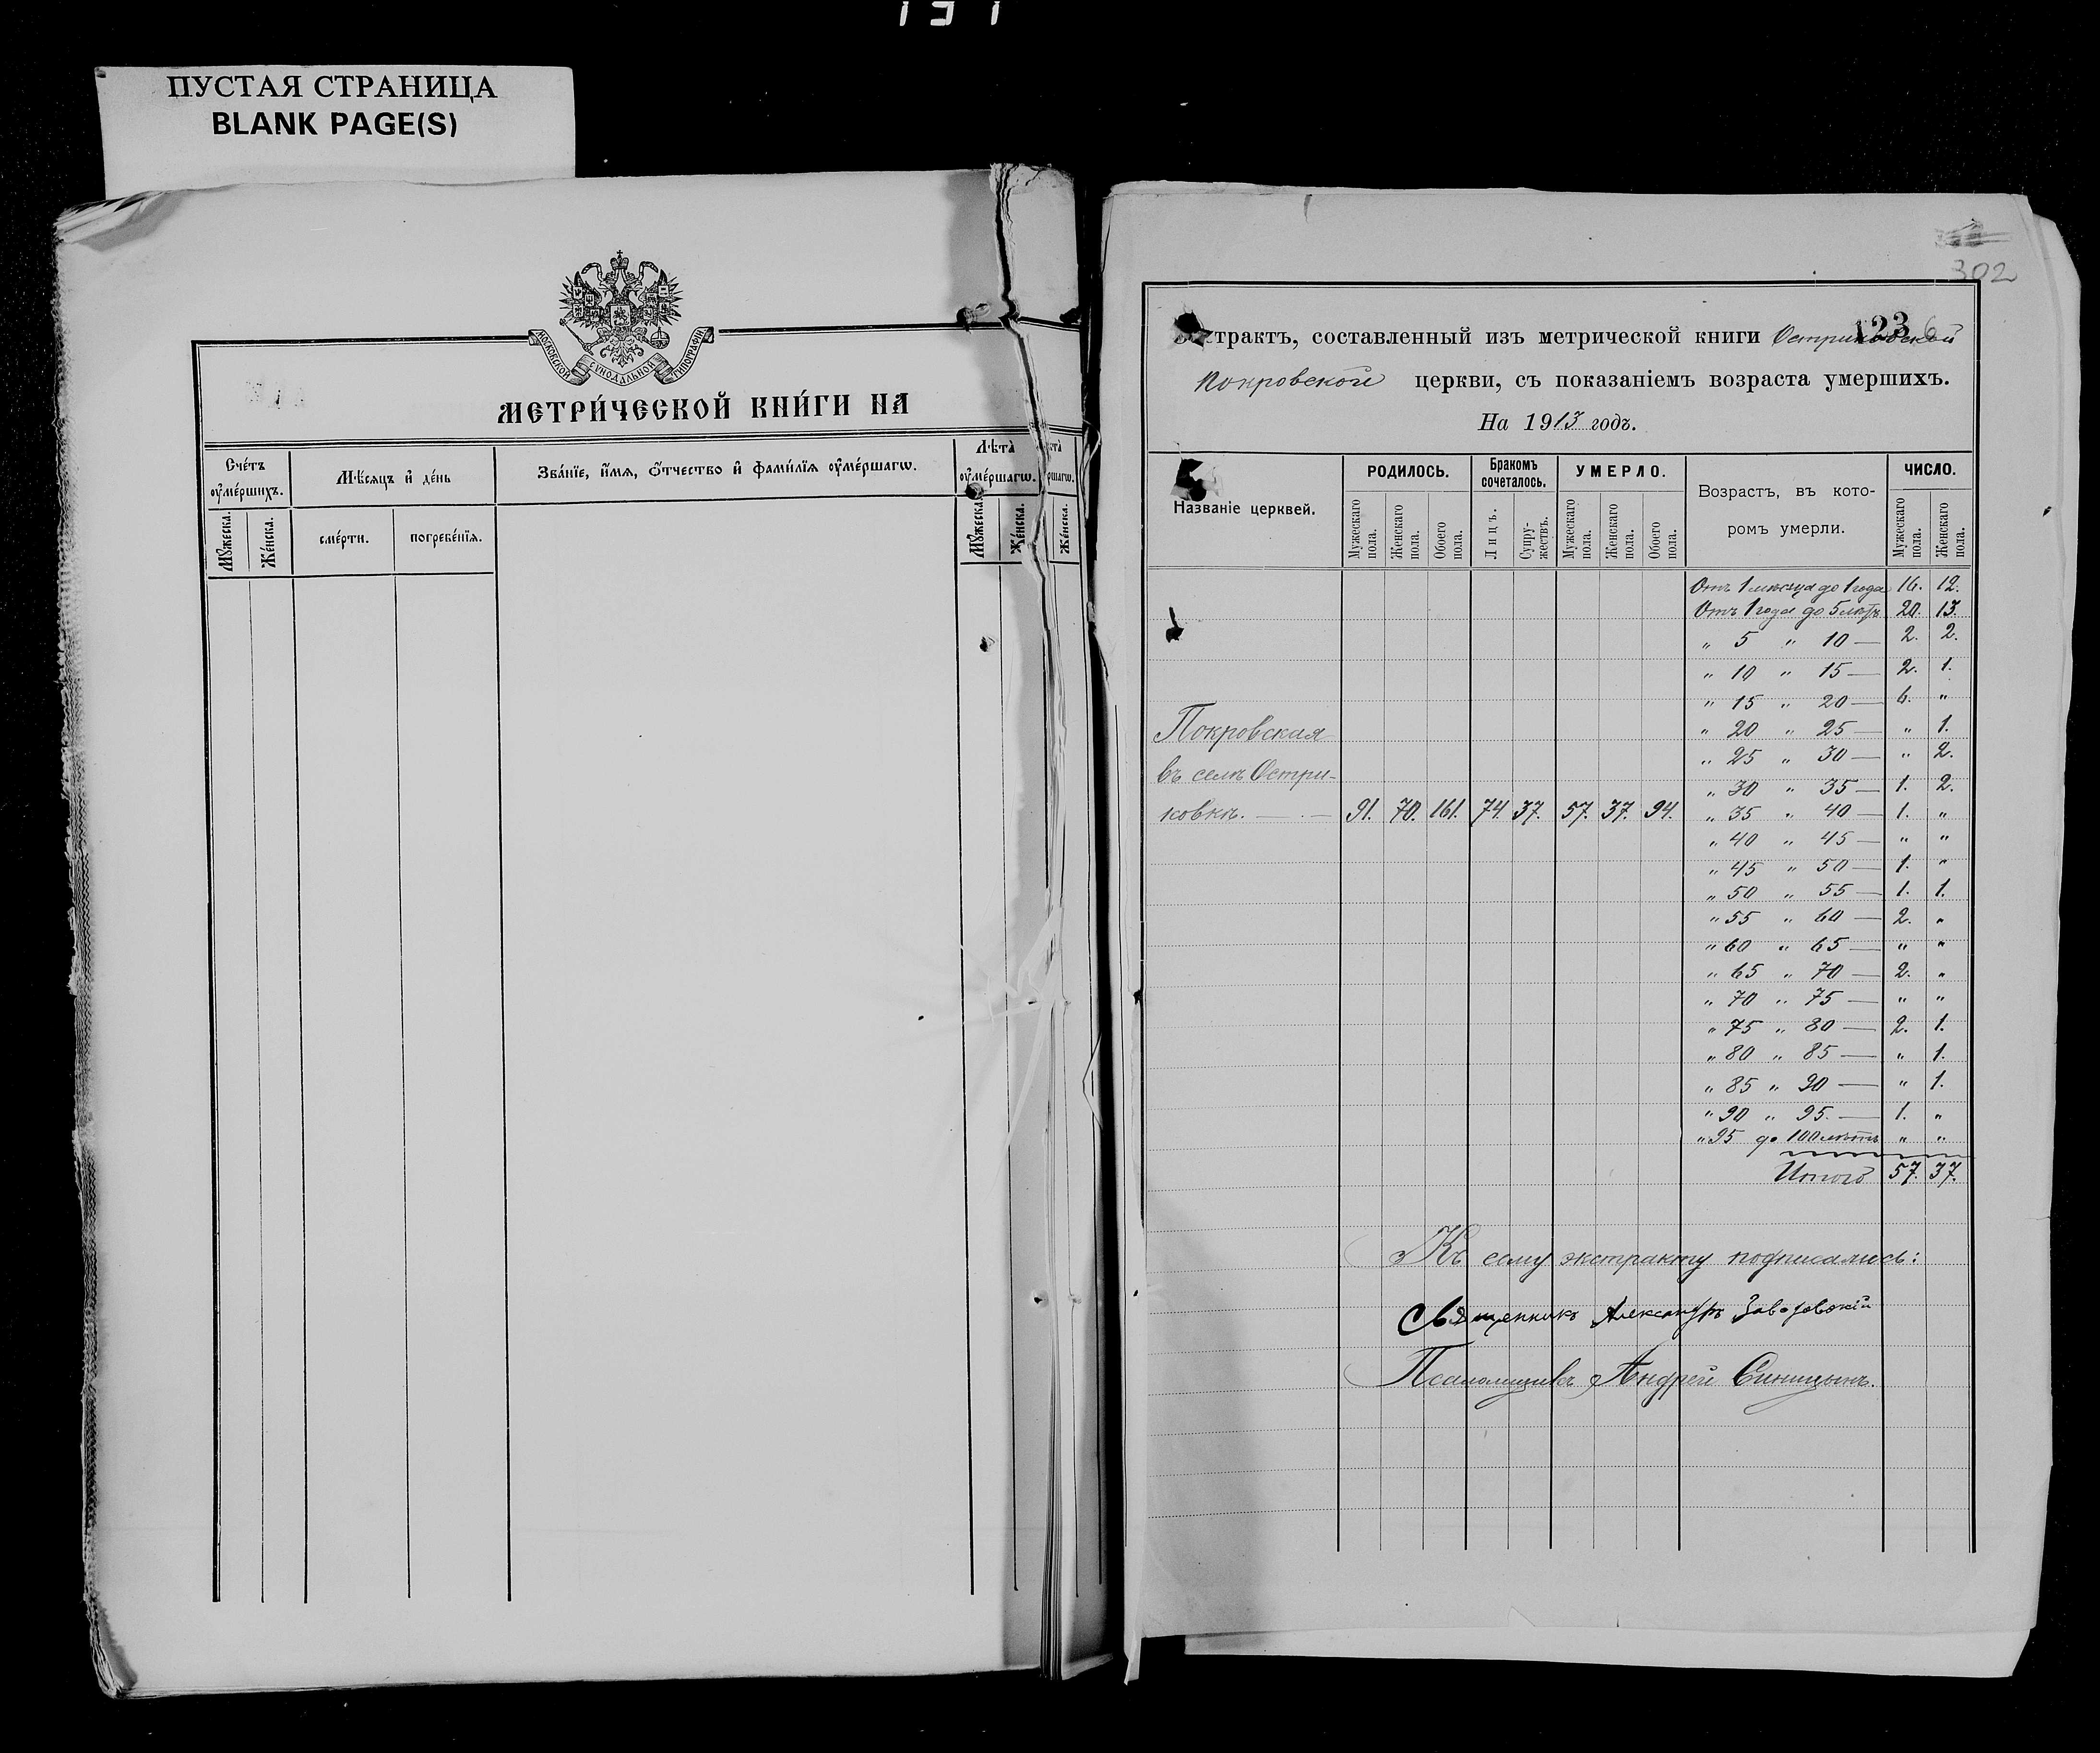 ПУСТАЯ СТРАНИЦА
BLANK PAGE(S)
МОСКОВСКОЙ СѴНОДАЛЬНОЙ ТИПОГРАФІИ
МЕТРИ́ЧЕСКОЙ КНИ́ГИ НА
Сче́тъ ᲂу҆ме́ршихъ.
Мѣ́сяцъ и҆ де́нь
Зва́нїе, и҆́мѧ, ѻ҆́тчество и҆ фами́лїѧ ᲂу҆ме́ршагѡ.
Лѣта̀ ᲂу҆ме́ршагѡ.
Мꙋ́жеска.
Же́нска.
сме́рти.
погребе́нїѧ.
Мꙋ́жеска
Же́нска.
Же́нска.
302
1236
трактъ, составленный изъ метрической книги Остриковской
Покровской церкви, съ показаніемъ возраста умершихъ.
На 1913 годъ.
Названіе церквей.
РОДИЛОСЬ.
Бракомъ сочеталось.
УМЕРЛО.
Возрастъ, въ кото-
ромъ умерли.
ЧИСЛО.
Мужескаго пола.
Женскаго пола.
Обоего пола.
Лицъ.
Супру-жествъ.
Мужескаго пола.
Женскаго пола.
Обоего пола.
Мужескаго пола.
Женскаго пола.
Отъ 1 мѣсяца до 1 года 16. 12.
Отъ 1 года до 5 лѣтъ 20. 13.
„ 5 „ 10 — 2. 2.
„ 10 „ 15 — 2. 1.
„ 15 „ 20 — 6. „
Покровская
„ 20 „ 25 — „ 1.
„ 25 „ 30 — „ 2.
въ селѣ Остри-
„ 30 „ 35 — 1. 2.
ковкѣ. — . — 91. 70. 161. 74. 37. 57. 37. 94.
„ 35 „ 40 — 1. „
„ 40 „ 45 — „ „
„ 45 „ 50 — 1. „
„ 50 „ 55 — 1. 1.
„ 55 „ 60 — 2. „
„ 60 „ 65 — „ „
„ 65 „ 70 — 2. „
„ 70 „ 75 — „ „
„ 75 „ 80 — 2. 1.
„ 80 „ 85 — „ 1.
„ 85 „ 90 — „ 1.
„ 90 „ 95. — 1. „
„ 95 до 100 лѣтъ „ „
Итого 57. 37.
Къ сему экстракту подписались:
Священникъ Александръ Заводовскій
Псаломщикъ Андрей Синицынъ.